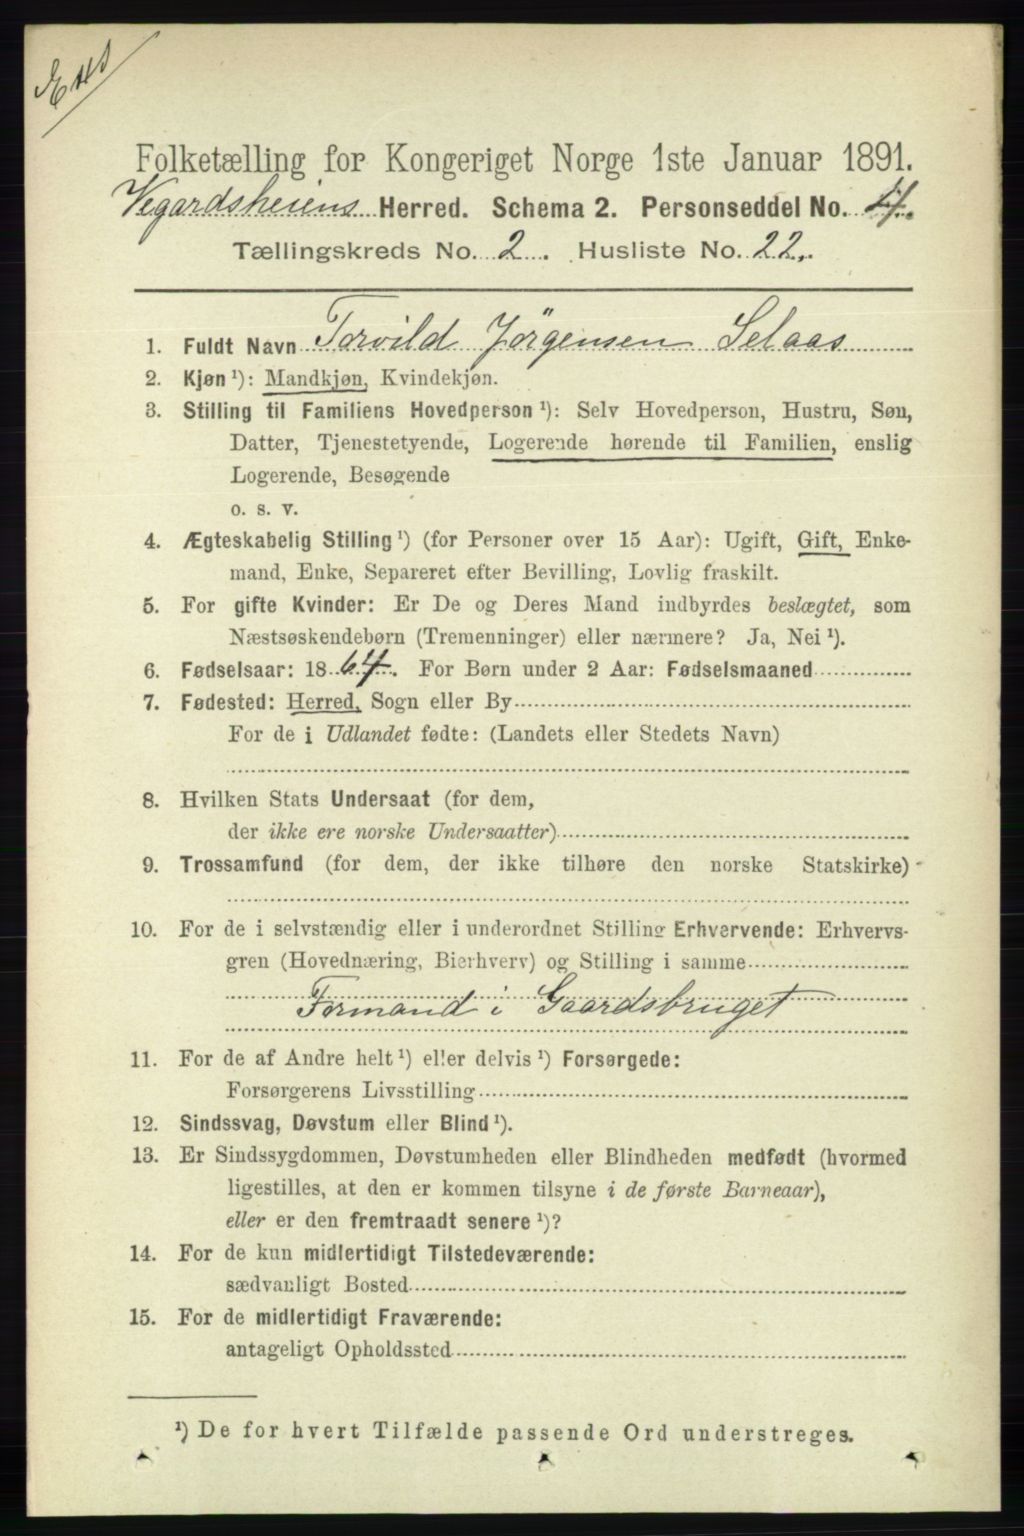 Folketælling for Kongeriget Norge 1ste Januar 1891.
Vegardsheiens Herred. Schema 2. Personseddel No. 4.
Tællingskreds No. 2. Husliste No. 22.
1. Fuldt Navn Torvild Jörgensen Selaas
2. Kjøn ¹): Mandkjøn, Kvindekjøn.
3. Stilling til Familiens Hovedperson ¹): Selv Hovedperson, Hustru, Søn,
Datter, Tjenestetyende, Logerende hørende til Familien, enslig
Logerende, Besøgende
o. s. v.
4. Ægteskabelig Stilling ¹) (for Personer over 15 Aar): Ugift, Gift, Enke-
mand, Enke, Separeret efter Bevilling, Lovlig fraskilt.
5. For gifte Kvinder: Er De og Deres Mand indbyrdes beslægtet, som
Næstsøskendebørn (Tremenninger) eller nærmere? Ja, Nei ¹).
6. Fødselsaar: 1864. For Børn under 2 Aar: Fødselsmaaned
7. Fødested: Herred, Sogn eller By
For de i Udlandet fødte: (Landets eller Stedets Navn)
8. Hvilken Stats Undersaat (for dem,
der ikke ere norske Undersaatter)
9. Trossamfund (for dem, der ikke tilhøre den norske Statskirke)
10. For de i selvstændig eller i underordnet Stilling Erhvervende: Erhvervs-
gren (Hovednæring, Bierhverv) og Stilling i samme
Formand i Gaardsbruget
11. For de af Andre helt ¹) eller delvis ¹) Forsørgede:
Forsørgerens Livsstilling
12. Sindssvag, Døvstum eller Blind ¹).
13. Er Sindssygdommen, Døvstumheden eller Blindheden medfødt (hvormed
ligestilles, at den er kommen tilsyne i de første Barneaar),
eller er den fremtraadt senere ¹)?
14. For de kun midlertidigt Tilstedeværende:
sædvanligt Bosted
15. For de midlertidigt Fraværende:
antageligt Opholdssted
¹) De for hvert Tilfælde passende Ord understreges.